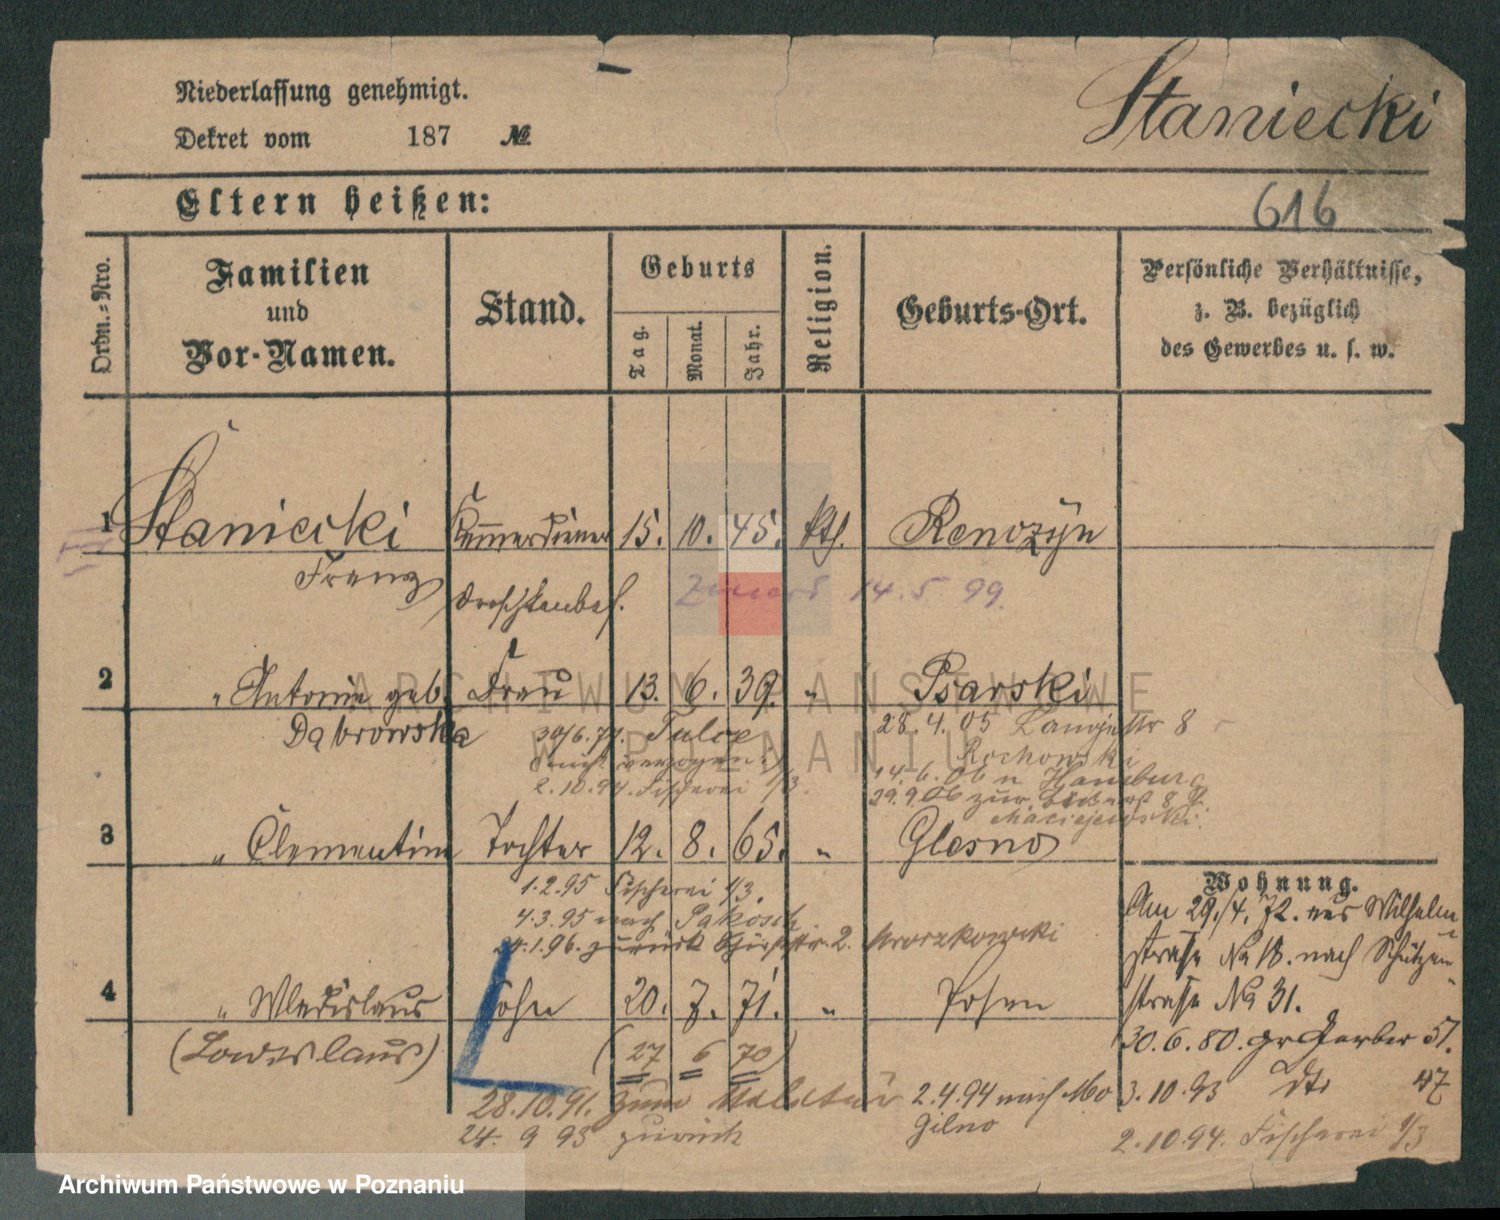 Niederlassung genehmigt.
Dekret vom 187 №
Staniecki
616
Eltern heißen:
Ordn.-Nro.
Familien
und
Vor-Namen.
Stand.
Geburts
Tag.
Monat.
Jahr.
Religion.
Geburts-Ort.
Persönliche Verhältnisse,
z. B. bezüglich
des Gewerbes u. s. w.
1 Staniecki Kammerdiener 15. 10. 45. kth.
Franz Droschkenbes. 14. 5. 99.
2 " Antonie geb. Frau 13. 6. 39. " Psarski
Dąbrowska 30/6.77. Tulce
28.4.05 Langestr 8
nach verzogen.
2.10.94. Fischerei 1/3.
14.6.06 n Hamburg
29.9.06 zur
Maciejewski.
3 " Clementine Tochter 12. 8. 65. " Glesno
1.2.95 Fischerei 1/3.
4.3.95 nach Pakosch
24.1.96. zurück 2. Mroczkowski
4 " Wladislaus Sohn 20. 7. 71. " Posen
(Ladislaus) (27 6 70)
28.10.91. zum Militair
24. 9 93 zurück
2.4.94 nach Mo
gilno
Wohnung.
Am 29./4. 72. aus Wilhelm
straße No 18. nach Schützen
straße No 31.
30.6.80. gr Gerber 51.
3.10.93 dto 47
2.10.94. Fischerei 1/3
ARCHIWUM PAŃSTWOWE
W POZNANIU
Archiwum Państwowe w Poznaniu